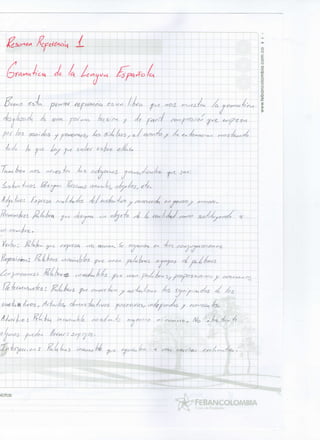 Resumen Referencia 1
Gramática de la Lengua Española
Bueno esta primer referencia es un libro que nos muestra la gramática
desglosada de una forma básica y de fácil comprensión que empieza
por los sonidos y fonemas, las sílabas, el acento y la entonación mostrando
todo lo que hay que saber sobre ellos
También nos muestra las categorías gramaticales que son:
Sustantivos: Designan Personas animales, objetos, etc.
Adjetivos: Expresa cualidades del sustantivo y concuerda en género y número.
Pronombres: Palabra que designa un objeto de la realidad como sustituyendo a
un nombre.
Verbos: Palabra que expresa una acción. Se organiza en tres conjugaciones
Preposiciones: Palabras invariables que unen palabras o grupos de palabras
Conjunciones: Palabras invariables que unen palabras, proposiciones y oraciones
Determinantes: Palabras que concretan y actualizan los significados de los
sustantivos. Artículos, demostrativos posesivos, indefinidos y numerales
Adverbios: Palabra invariable no admite género ni número. No obstante
algunos pueden llevar sufijos.
Interjecciones: Palabras invariable que equivalen a una oración exclamativa.
www.febancolombia.com.co
NOTAS
FEBANCOLOMBIA